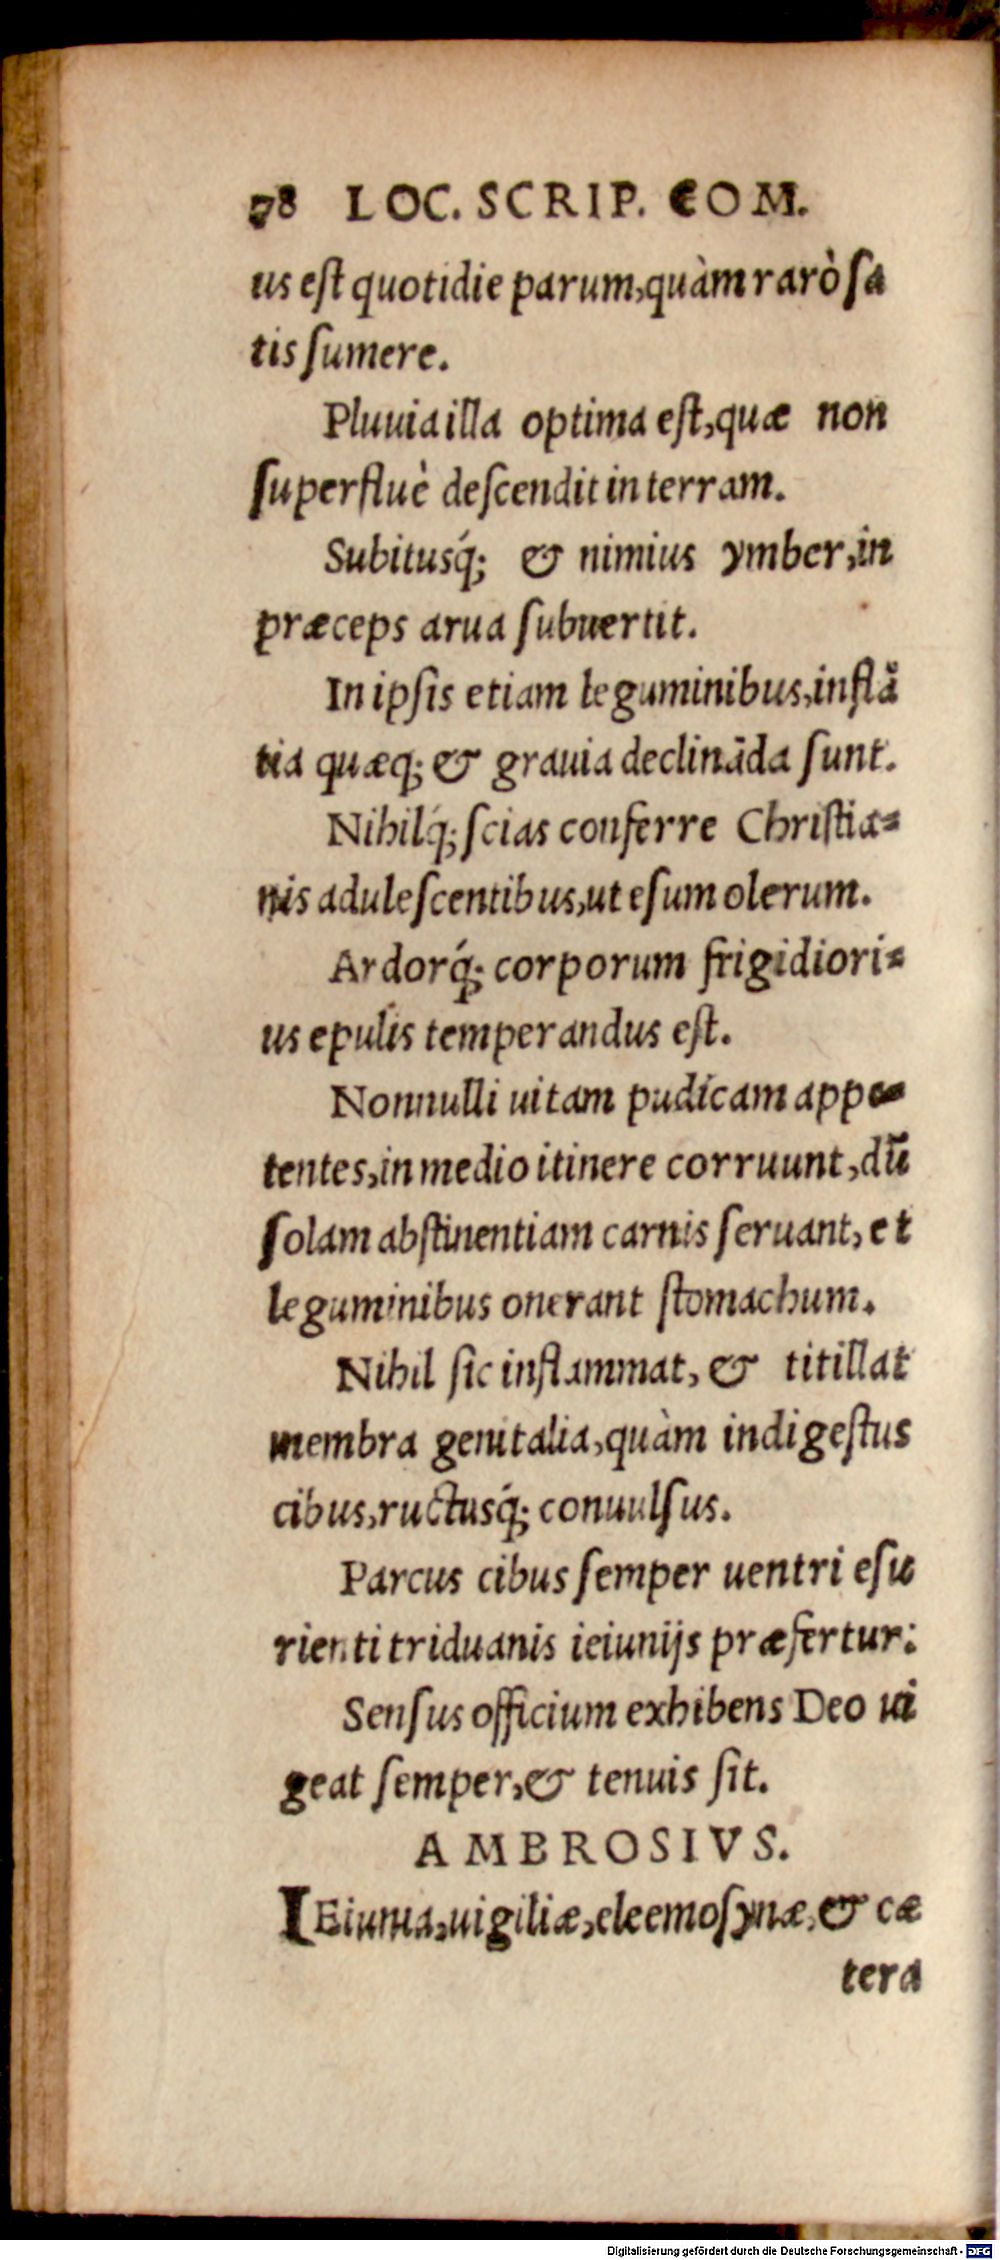 78 LOC. SCRIP. COM.
us eſt quotidie parum,quàm rarò ſa
tis ſumere.
Pluuia illa optima eſt,quæ non
ſuperfluè deſcendit in terram.
Subitusq́; & nimius ymber,in
præceps arua ſubuertit.
In ipſis etiam leguminibus,inflā
tia quæq; & grauia declināda ſunt.
Nihilq́; ſcias conferre Chriſtia=
nis aduleſcentibus,ut eſum olerum.
Ardorq́; corporum frigidiori=
us epulis temperandus eſt.
Nonnulli uitam pudicam appe=
tentes,in medio itinere corruunt,dū
ſolam abſtinentiam carnis ſeruant, et
leguminibus onerant ſtomachum.
Nihil ſic inflammat, & titillat
membra genitalia,quàm indigeſtus
cibus,ructusq́; conuulſus.
Parcus cibus ſemper uentri eſu
rienti triduanis ieiunijs præfertur:
Senſus officium exhibens Deo ui
geat ſemper,& tenuis ſit.
AMBROSIVS.
IEiunia,uigiliæ,eleemoſynæ,& cæ
tera
Digitalisierung gefördert durch die Deutsche Forschungsgemeinschaft - DFG